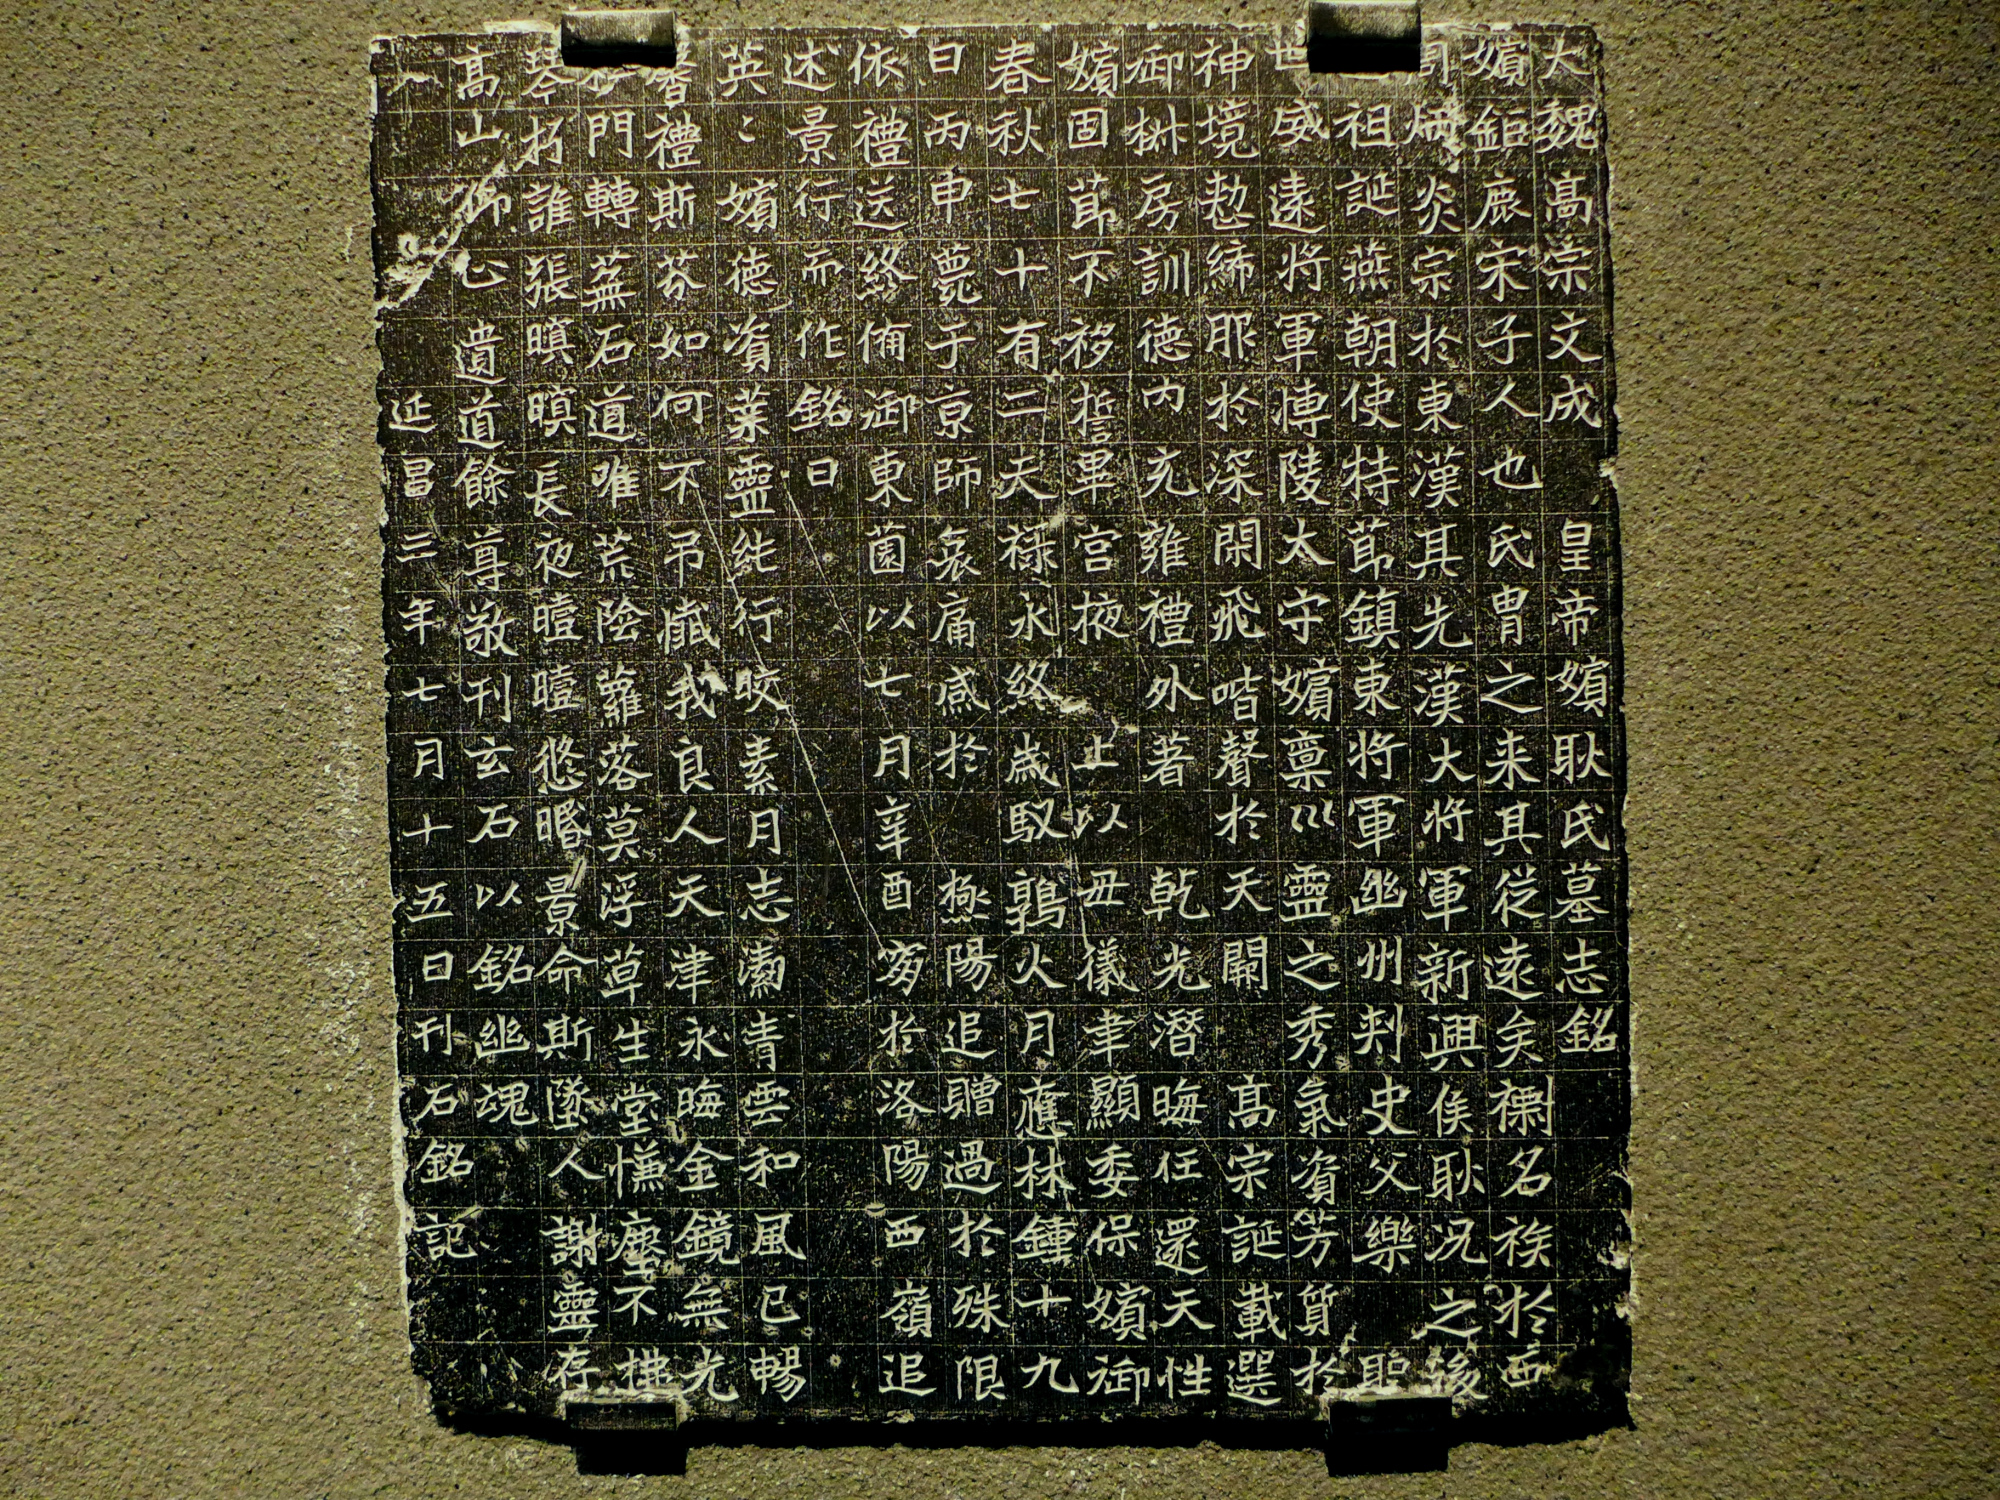 大魏高宗文成 皇帝嬪耿氏墓志銘
嬪鉅鹿宋子人也氏胄之来其從遠矣名族於西
周炳炎宗於東漢其先漢大將軍新興侯耿况之後
祖誕燕朝使持節鎮東將軍幽州刾史父樂 聖
世威遠將軍博陵太守嬪稟巛靈之秀氣資芳質於
神境懃締服於深閑飛喈聲於天闈 高宗誕載選
御椒房訓德内充雍禮外著 乾光潛晦任還天性
嬪固節不移誓畢宮掖 上以毋儀聿顯委保嬪御
春秋七十有二天祿永終歲馭鶉火月應林鍾十九
日丙申薨于京師哀痛慼於極陽追贈過於殊限
依禮送終備御東菌以七月辛酉窆於洛陽西嶺追
述景行而作銘曰
英〻嬪德資葉靈純行皎素月志青雲和風已暢
禮斯芬如何不弔殲我良人天津永晦金鏡無光
松門轉蕪石道唯荒陰蘿落莫浮草生堂慊塵不拂
琴朽誰張暝暝長夜曀曀悠昏景命斯墜人謝靈存
高山仰心 遺道餘尊敬刊玄石以銘幽魂
延昌三年七月十五日刊石銘記